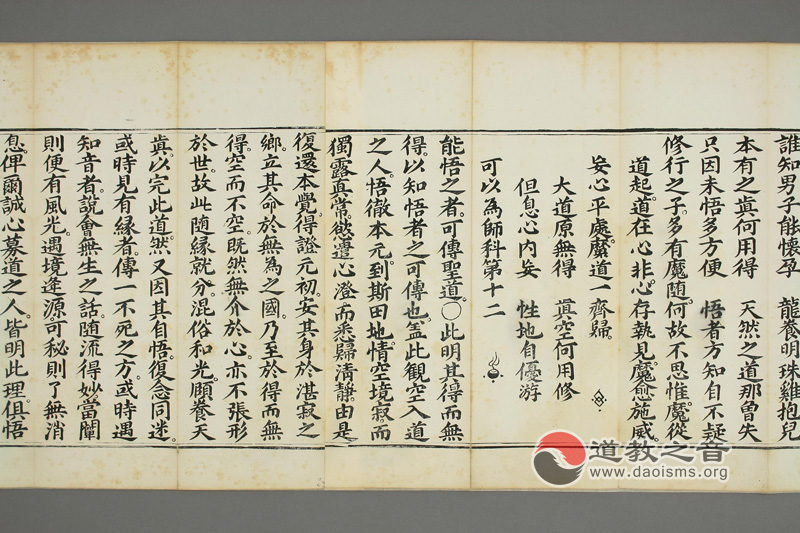 誰知男子能懷孕 龍養明珠雞抱兒
本有之眞何用得 天然之道那曾失
只因未悟多方便 悟者方知自不疑
修行之子多有魔隨何故不思惟魔從
道起道在心非心存執見魔愈施威
妄心平處魔道一齊歸
大道原無得 眞空何用修
但息心內妄 性地自優游
可以為師科第十二
能悟之者可傳聖道〇此明其得而無
得以知悟者之可傳也盖此觀空入道
之人悟徹本元到斯田地情空境寂而
獨露真常慾遣心澄而悉歸清靜由是
復還本覺得證元初安其身於湛寂之
鄉立其命於無為之國乃至於得而無
得空而不空既然無介於心亦不張形
於世故此隨緣就分混俗和光頤養天
眞以完此道然又因其自悟復念同迷
或時見有緣者傳一不死之方或時遇
知音者說會無生之話隨流得妙當闡
則便有風光遇境逢源可秘則了無消
息俾爾誠心募道之人皆明此理俱悟
道教之音
www.daoisms.org